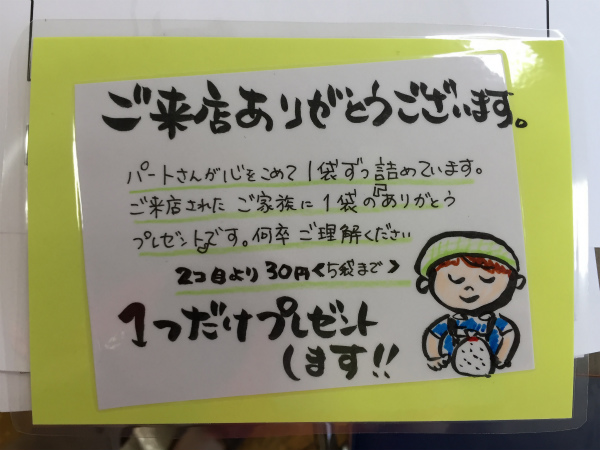 ご来店ありがとうございます。
パートさんが心をこめて1袋ずつ詰めています。
ご来店された ご家族に1袋の「ありがとう
プレゼント」です。何卒ご理解ください
2コ目より30円<5袋まで>
1つだけプレゼント
します!!